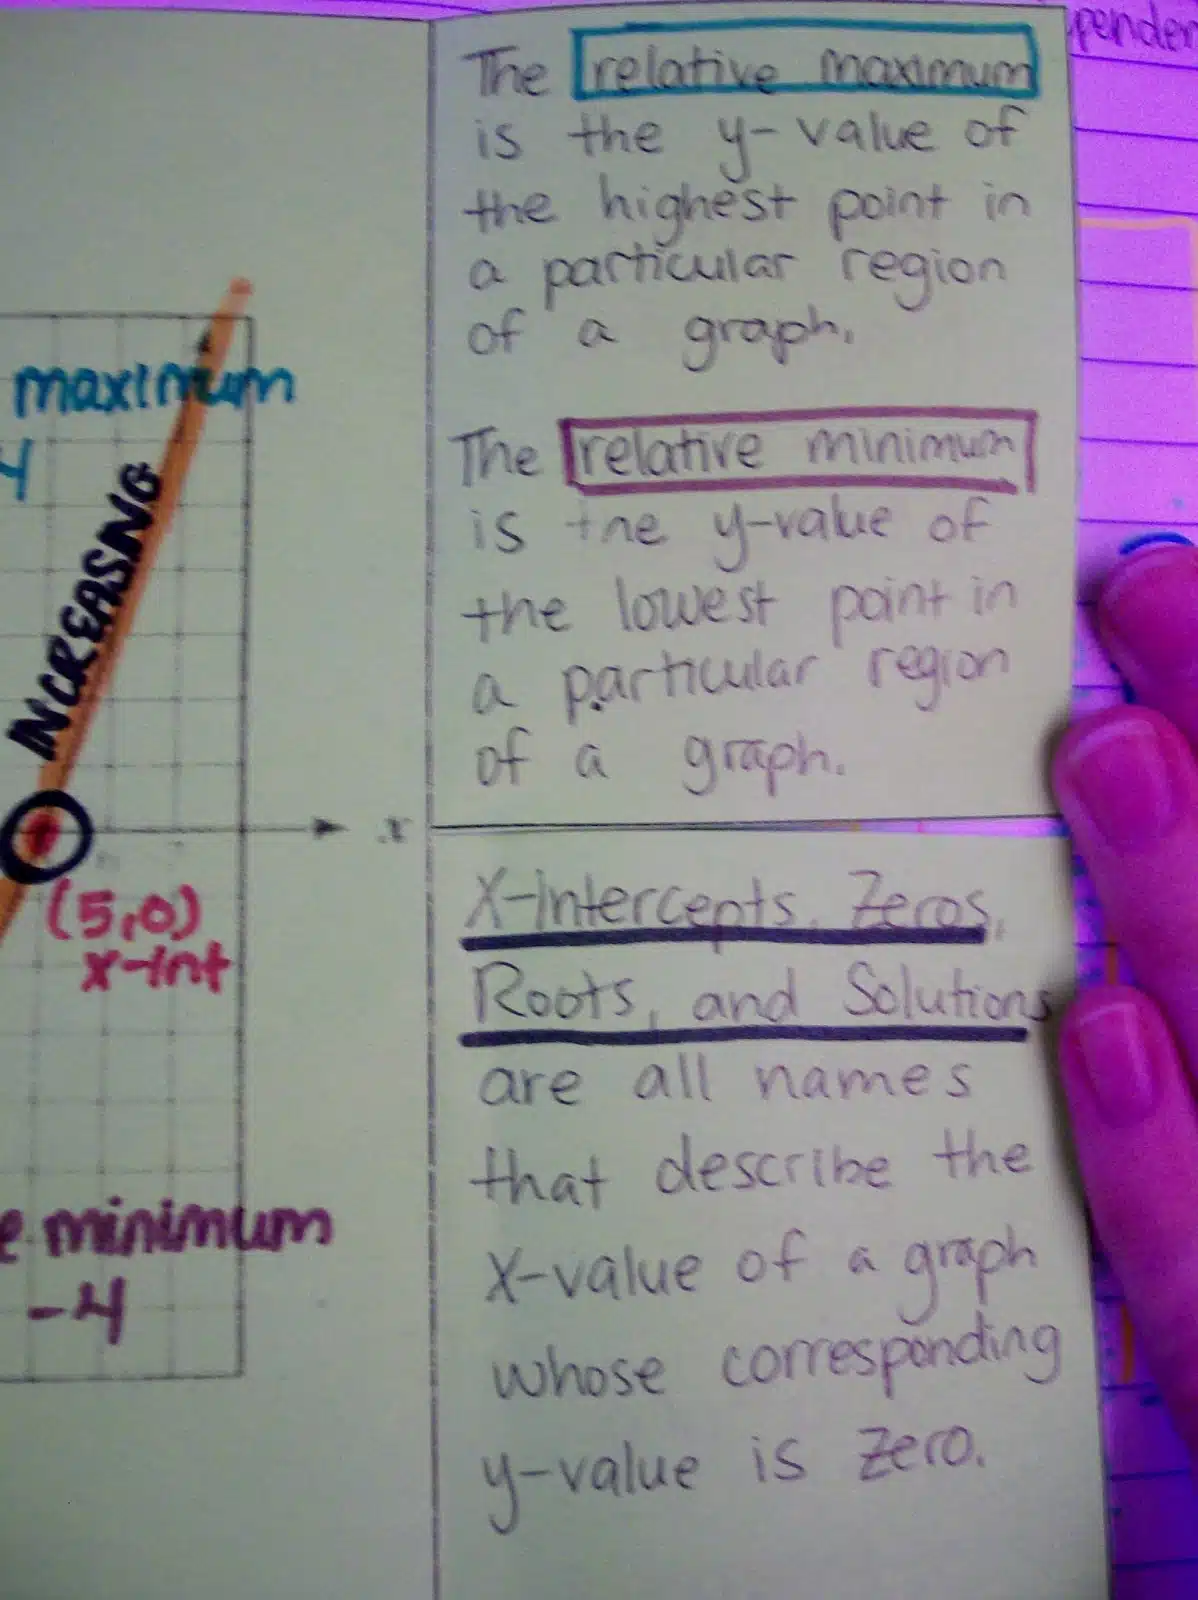 The relative maximum
is the y-value of
the highest point in
a particular region
of a graph.
The relative minimum
is the y-value of
the lowest point in
a particular region
of a graph.
X-intercepts, Zeros,
Roots, and Solutions
are all names
that describe the
x-value of a graph
whose corresponding
y-value is zero.
maximum
4
INCREASING
x
(5,0)
x-int
e minimum
-4